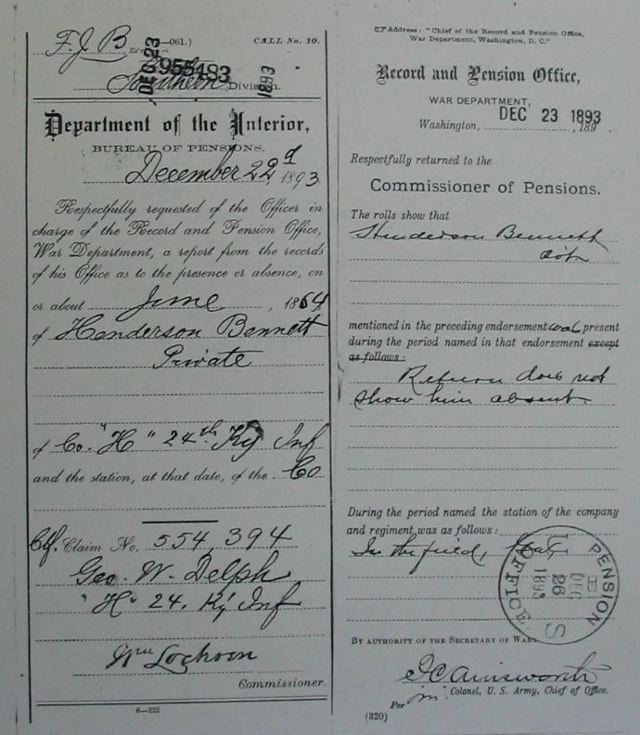 F. J. B
—061.)
CALL No. 10.
DEC 23 1893
955483
Southern Division.
Department of the Interior,
BUREAU OF PENSIONS,
December 22d, 1893
Respectfully requested of the Officer in
charge of the Record and Pension Office,
War Department, a report from the records
of his Office as to the presence or absence, on
or about June, 1864
of Henderson Bennett
Private
of Co. "H" 24th Ky Inf
and the station, at that date, of the Co
Ctf. Claim No. 554,394
Geo. W. Delph
"H" 24. Ky Inf
Wm Lochren
Commissioner.
6—222
Address: "Chief of the Record and Pension Office,
War Department, Washington, D. C."
Record and Pension Office,
WAR DEPARTMENT,
Washington, DEC 23 1893, 189
Respectfully returned to the
Commissioner of Pensions.
The rolls show that
Henderson Bennett
mentioned in the preceding endorsement was present
during the period named in that endorsement except
as follows:
Return does not
show him absent
During the period named the station of the company
and regiment was as follows:
In the field,
PENSION OFFICE
U S
DEC
26
1893
BY AUTHORITY OF THE SECRETARY OF WAR:
F C Ainsworth
Colonel, U. S. Army, Chief of Office.
Per
(320)